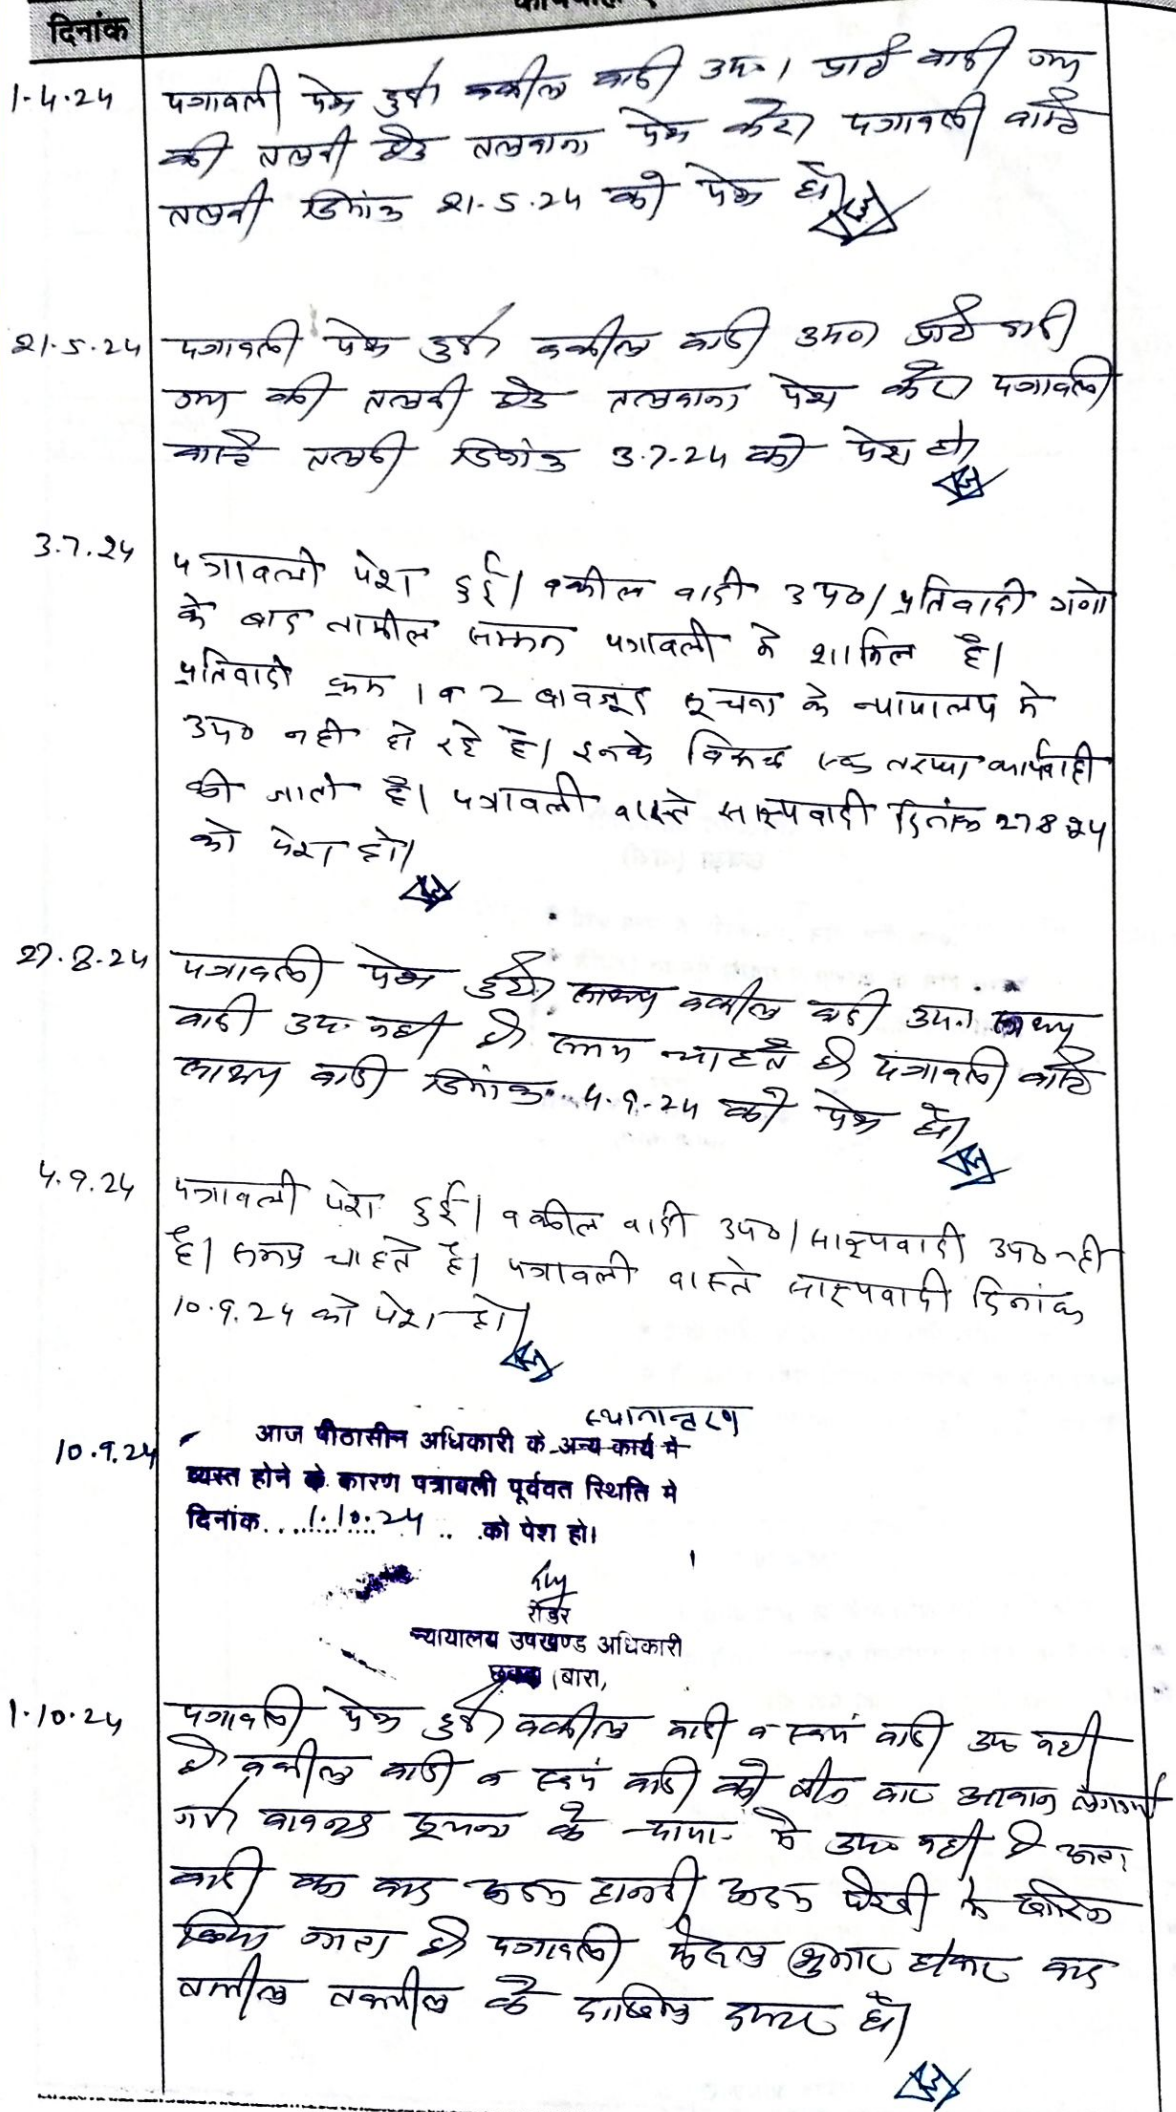 दिनांक
1.4.24
पत्रावली पेश हुई। वकील वादी उप०। प्रति वादी गण
की तलबी हेतु तलवाना पेश करे। पत्रावली वास्ते
तलबी दिनांक 21.5.24 को पेश हो।
21.5.24
पत्रावली पेश हुई। वकील वादी उप०। प्रति वादी
गण की तलबी हेतु तलवाना पेश करे। पत्रावली
वास्ते तलबी दिनांक 3.7.24 को पेश हो।
3.7.24
पत्रावली पेश हुई। वकील वादी उप०। प्रतिवादी गणो
के बाद तामील सम्मन पत्रावली मे शामिल है।
प्रतिवादी क्रम 1 व 2 बावजूद सूचना के न्यायालय मे
उप० नही हो रहे है। इनके विरूद्ध एक तरफा कार्यवाही
की जाती है। पत्रावली वास्ते साक्ष्यवादी दिनांक 27.8.24
को पेश हो।
27.8.24
पत्रावली पेश हुई। वकील वादी उप०। साक्ष्य
वादी उप. नही है। समय चाहते है। पत्रावली वास्ते
साक्ष्य वादी दिनांक 4.9.24 को पेश हो।
4.9.24
पत्रावली पेश हुई। वकील वादी उप०। साक्ष्यवादी उप० नही
है। समय चाहते है। पत्रावली वास्ते साक्ष्यवादी दिनांक
10.9.24 को पेश हो।
स्थानान्तरण
10.9.24
आज पीठासीन अधिकारी के अन्य कार्य मे
व्यस्त होने के कारण पत्रावली पूर्ववत स्थिति मे
दिनांक 1.10.24 को पेश हो।
रीडर
न्यायालय उपखण्ड अधिकारी
छबड़ा (बारा,
1.10.24
पत्रावली पेश हुई। वकील वादी व स्वयं वादी उप० नही
है। वकील वादी व स्वयं वादी को तीन बार आवाज लगवाई
गई। बावजूद सूचना के न्याया. मे उप० नही है। अतः
वादी का वाद अदम हाजरी अदम पैरवी मे खारिज
किया जाता है। पत्रावली फैसल शुमार होकर बाद
तकमील के दाखिल दफ्तर हो।